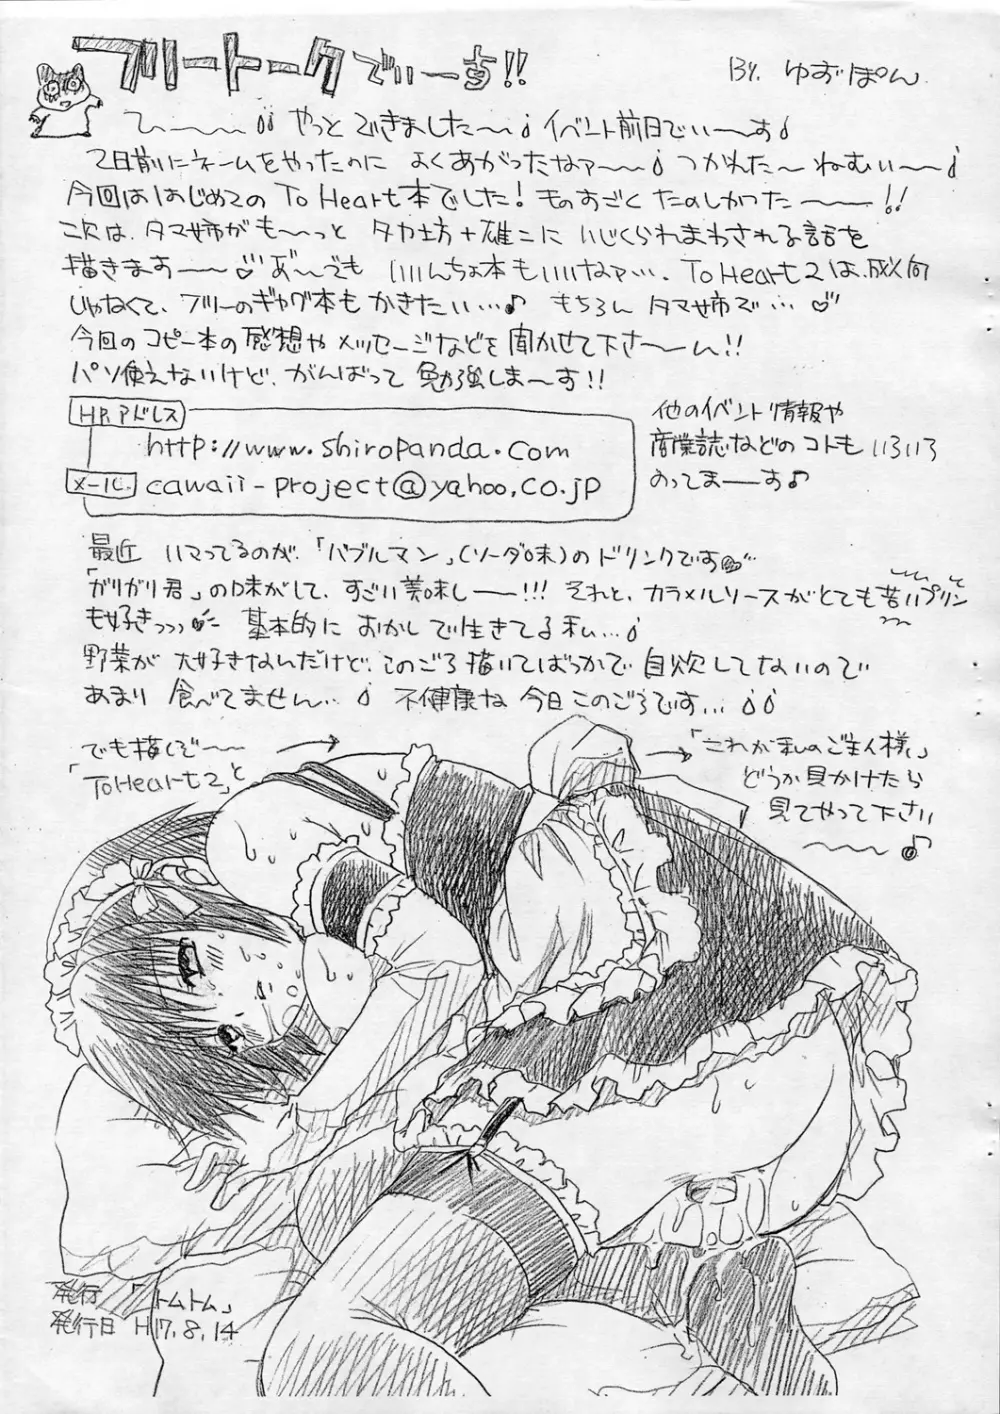 フリートークでぃーす!!
BY. ゆずぽん
ひ〜〜〜 やっとできました〜♩ イベント前日でぃ〜す♩
2日前にネームをやったのに よくあがったなァ〜〜♩ つかれた〜 ねむぃ〜〜♩
今回ははじめての To Heart本でした! ものすごくたのしかった〜〜!!
次は、タマ姉がも〜っと タカ坊+雄二に いじくられまわされる話を
描きます〜〜♡ あ゛〜でも いいんちょ本もいいなァ…、To Heart2は、成人向
じゃなくて、フリーのギャグ本も かきたい…♪ もちろん タマ姉で…♡
今回のコピー本の感想や メッセージなどを 聞かせて下さ〜〜ん!!
パソ使えないけど、がんばって 勉強しま〜す!!
H.P.アドレス
http://www.shiropanda.com
メール
cawaii-project@yahoo.co.jp
他のイベント情報や
商業誌などのコトもいろいろ
のってま〜〜す♪
最近 ハマってるのが、「バブルマン」(ソーダ味)のドリンクです
「ガリガリ君」の味がして、すごい美味し〜〜!!! それと、カラメルソースがとても苦いプリン
も好きっっっ 基本的に おかしで生きてる私…♩
野菜が 大好きなんだけど、このごろ描いてばっかで 自炊してないので
あまり 食べてません…♩ 不健康な 今日このごろです…♩♩
でも描くぞ〜〜
「ToHeart2」と
→「これが私のご主人様」
どうか見かけたら
見てやって下さい
〜〜〜♪
発行 「トムトム」
発行日 H17.8.14